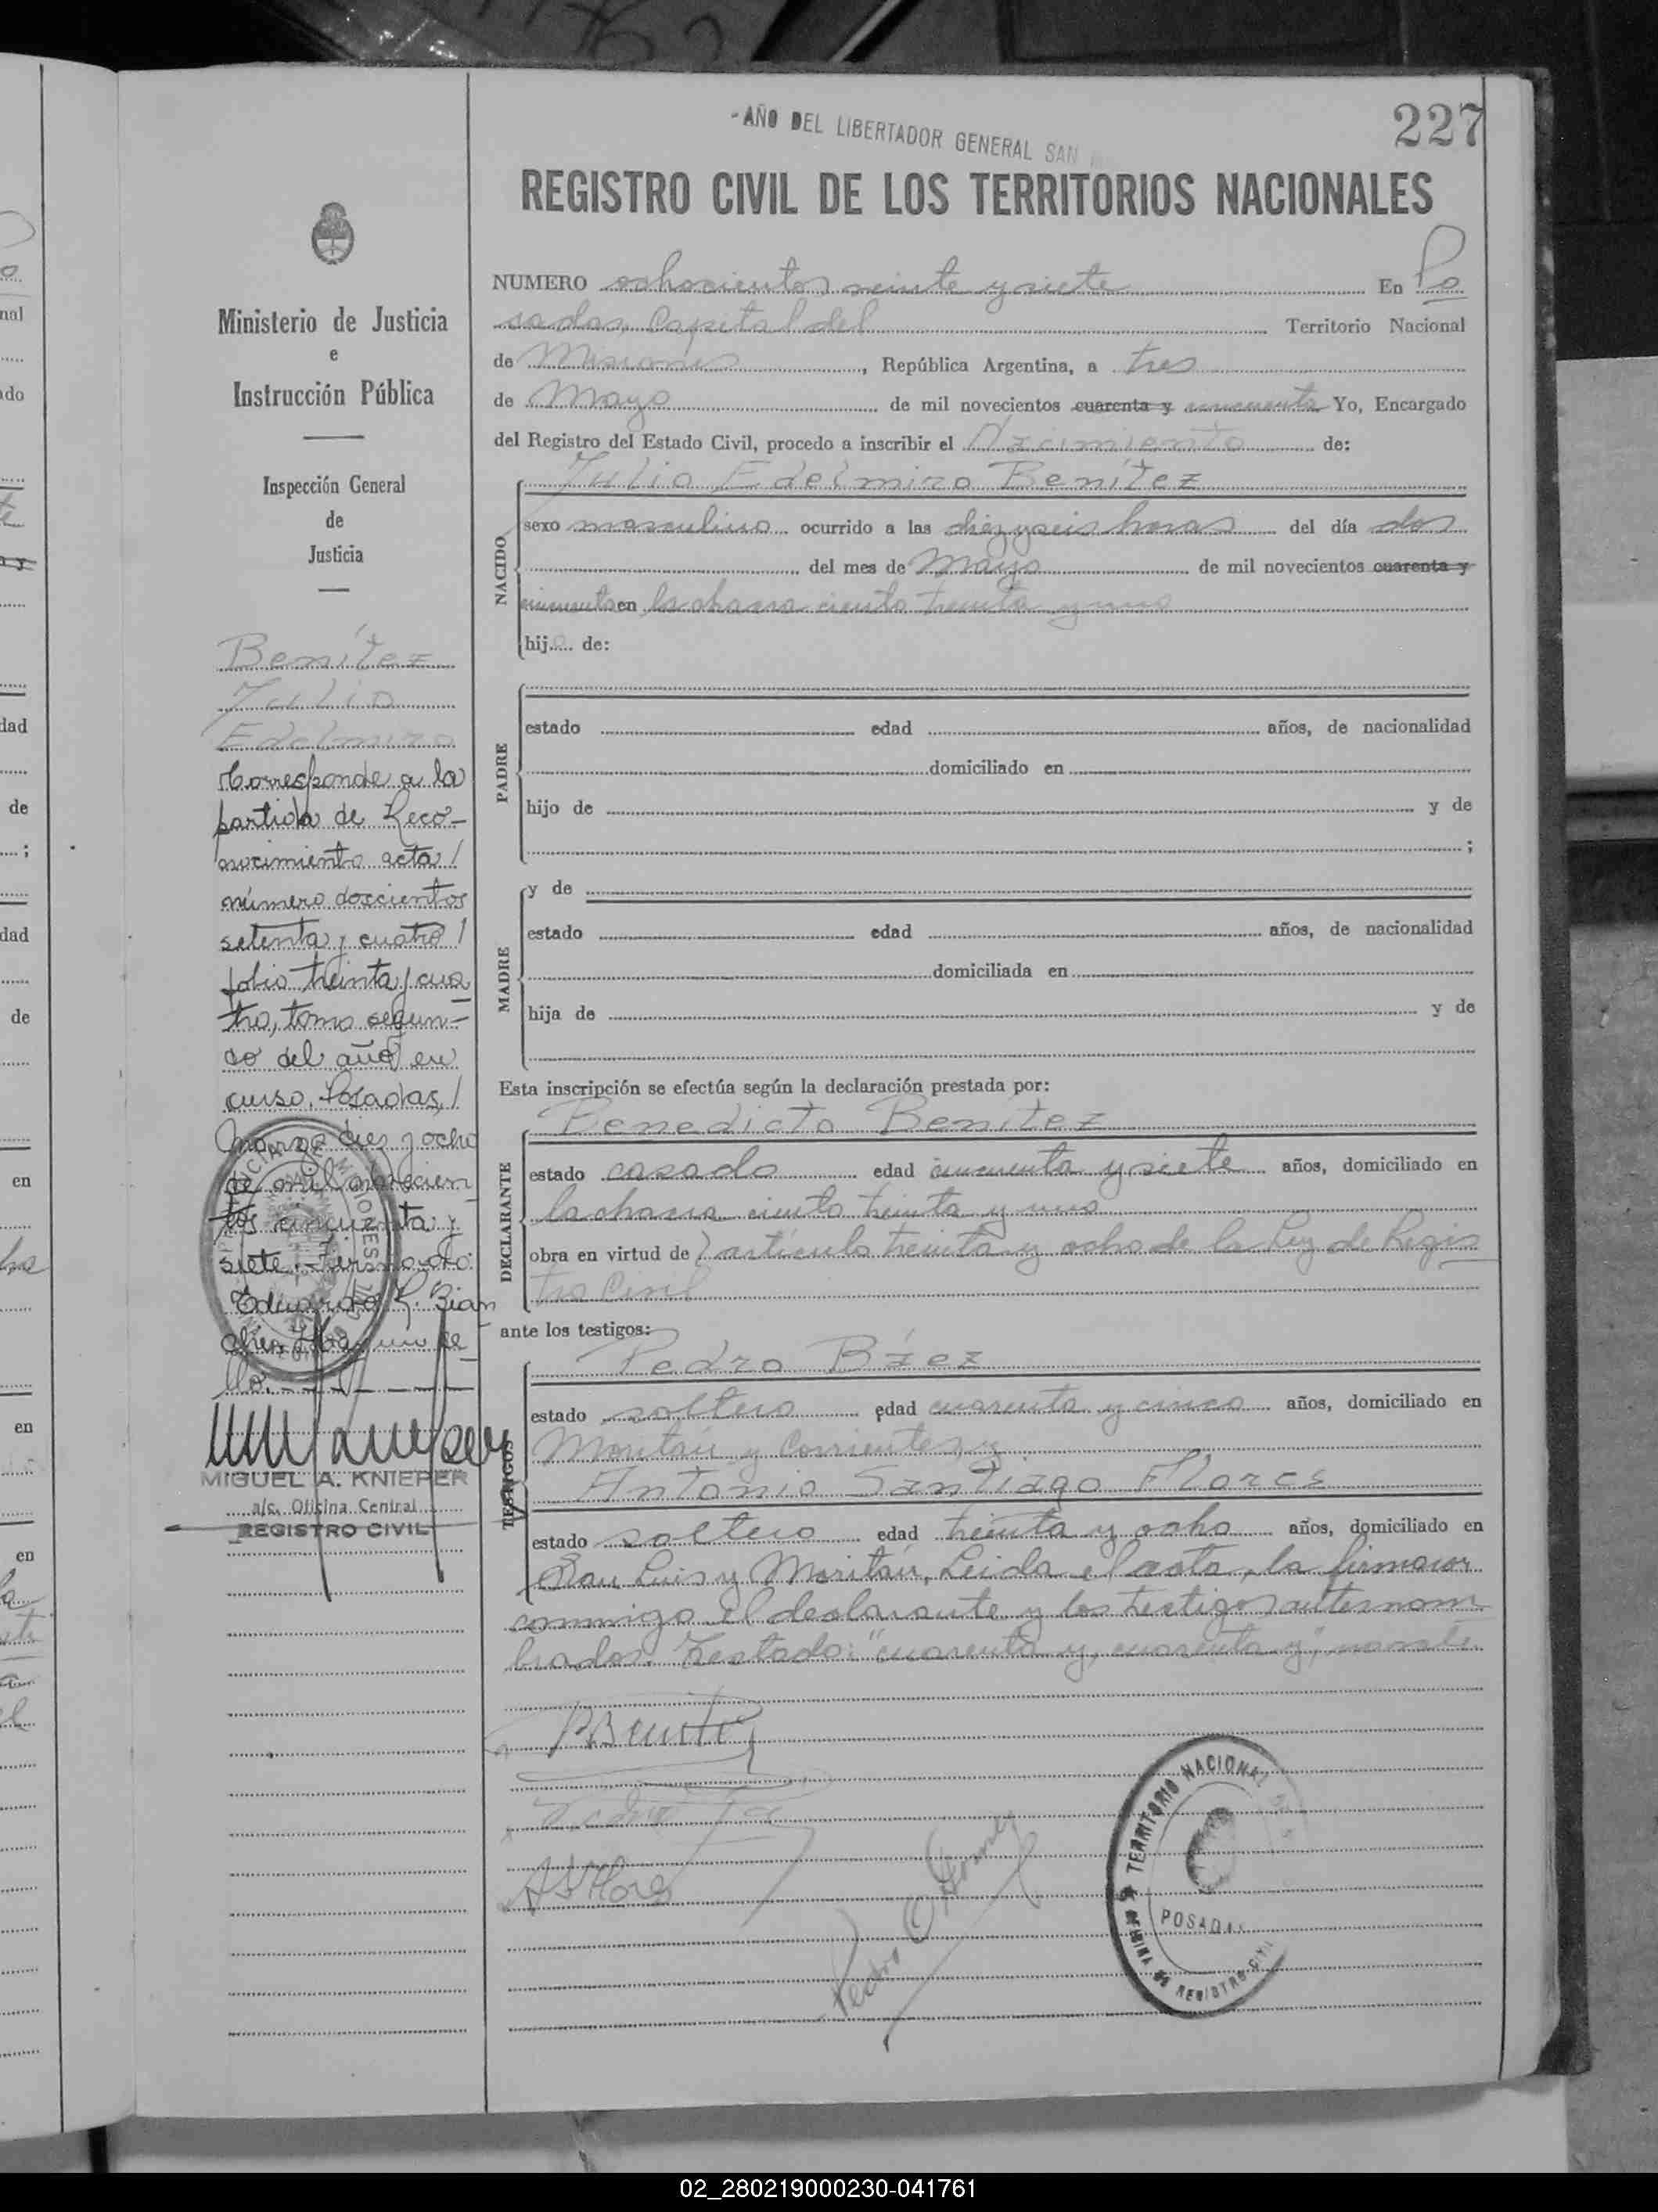 - AÑO DEL LIBERTADOR GENERAL SAN
227
REGISTRO CIVIL DE LOS TERRITORIOS NACIONALES
NUMERO ochocientos veinte y siete En Po
sadas, Capital del Territorio Nacional
de Misiones, República Argentina, a tres
de Mayo de mil novecientos cuarenta y cincuenta Yo, Encargado
del Registro del Estado Civil, procedo a inscribir el Nacimiento de:
NACIDO
Julio Edelmiro Benítez
sexo masculino ocurrido a las diez y seis horas del día dos
del mes de Mayo de mil novecientos cuarenta y
cincuenta en la chacra ciento treinta y uno
hijo de:
PADRE
estado edad años, de nacionalidad
domiciliado en
hijo de y de
;
MADRE
y de
estado edad años, de nacionalidad
domiciliada en
hija de y de
Esta inscripción se efectúa según la declaración prestada por:
DECLARANTE
Benedicto Benítez
estado casado edad cincuenta y siete años, domiciliado en
la chacra ciento treinta y uno
obra en virtud de artículo treinta y ocho de la Ley de Regis
tro Civil
ante los testigos:
TESTIGOS
Pedro Báez
estado soltero edad cuarenta y cinco años, domiciliado en
Moritán y Corrientes y
Antonio Santiago Flores
estado soltero edad treinta y ocho años, domiciliado en
San Luis y Moritán, Leida el acta, la firmaron
conmigo el declarante y los testigos antes nom
brados. Testado: "cuarenta y, cuarenta y", no vale
B Benitez
A S Flores
TERRITORIO NACIONAL DE
POSADAS
OFICINA DE REGISTRO CIVIL
Ministerio de Justicia
e
Instrucción Pública
Inspección General
de
Justicia
Benítez
Julio
Edelmiro
Corresponde a la
partida de Reco-
nocimiento acta /
número doscientos
setenta y cuatro /
folio treinta y cua
tro, tomo segun-
do del año en
curso. Posadas, /
Marzo diez y ocho
de mil novecien
tos cincuenta y
siete. - Firmado:
Eduardo R. Bian
chi. Hay un se-
llo.
MIGUEL A. KNIEPER
a/c. Oficina Central
REGISTRO CIVIL
02_280219000230-041761